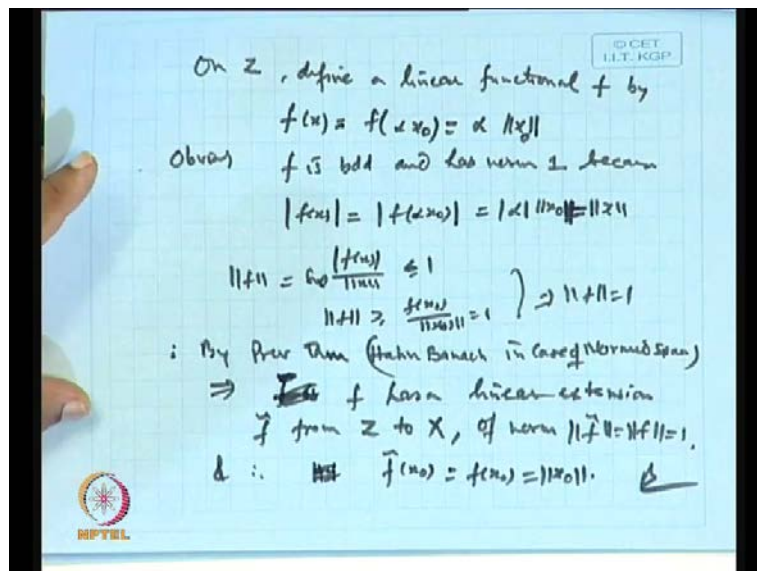 © CET
I.I.T. KGP
On Z, define a linear functional f by
f(x) = f(αx₀) = α ||x₀||
Obvious f is bdd and has norm 1 because
|f(x)| = |f(αx₀)| = |α| ||x₀|| = ||x||
||f|| = Sup |f(x)| / ||x|| ≤ 1
||f|| ≥ f(x₀) / ||x₀|| = 1 } ⇒ ||f|| = 1
∴ By Prev Thm (Hahn Banach in Case of Normed Space)
⇒ f has a linear extension
f̃ from Z to X, of norm ||f̃|| = ||f|| = 1.
& ∴ f̃(x₀) = f(x₀) = ||x₀||.
NPTEL